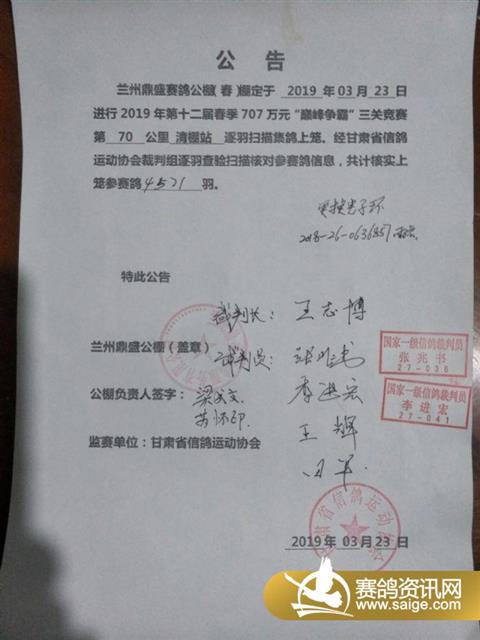 公 告
兰州鼎盛赛鸽公棚(春)棚定于 2019 年 03 月 23 日
进行 2019 年第十二届春季 707 万元“巅峰争霸”三关竞赛
第 70 公里 清棚站 逐羽扫描集鸽上笼。经甘肃省信鸽
运动协会裁判组逐羽查验扫描核对参赛鸽信息，共计核实上
笼参赛鸽 4571 羽。
更换电子环
2018-26-0636857
特此公告
裁判长：王志博
兰州鼎盛公棚（盖章） 裁判员：张兆书
国家一级信鸽裁判员
张兆书
27-036
公棚负责人签字： 李进宏
国家一级信鸽裁判员
李进宏
27-041
苏怀印
王辉
监赛单位：甘肃省信鸽运动协会
甘肃省信鸽运动协会
2019 年 03 月 23 日
赛鸽资讯网
www.saige.com